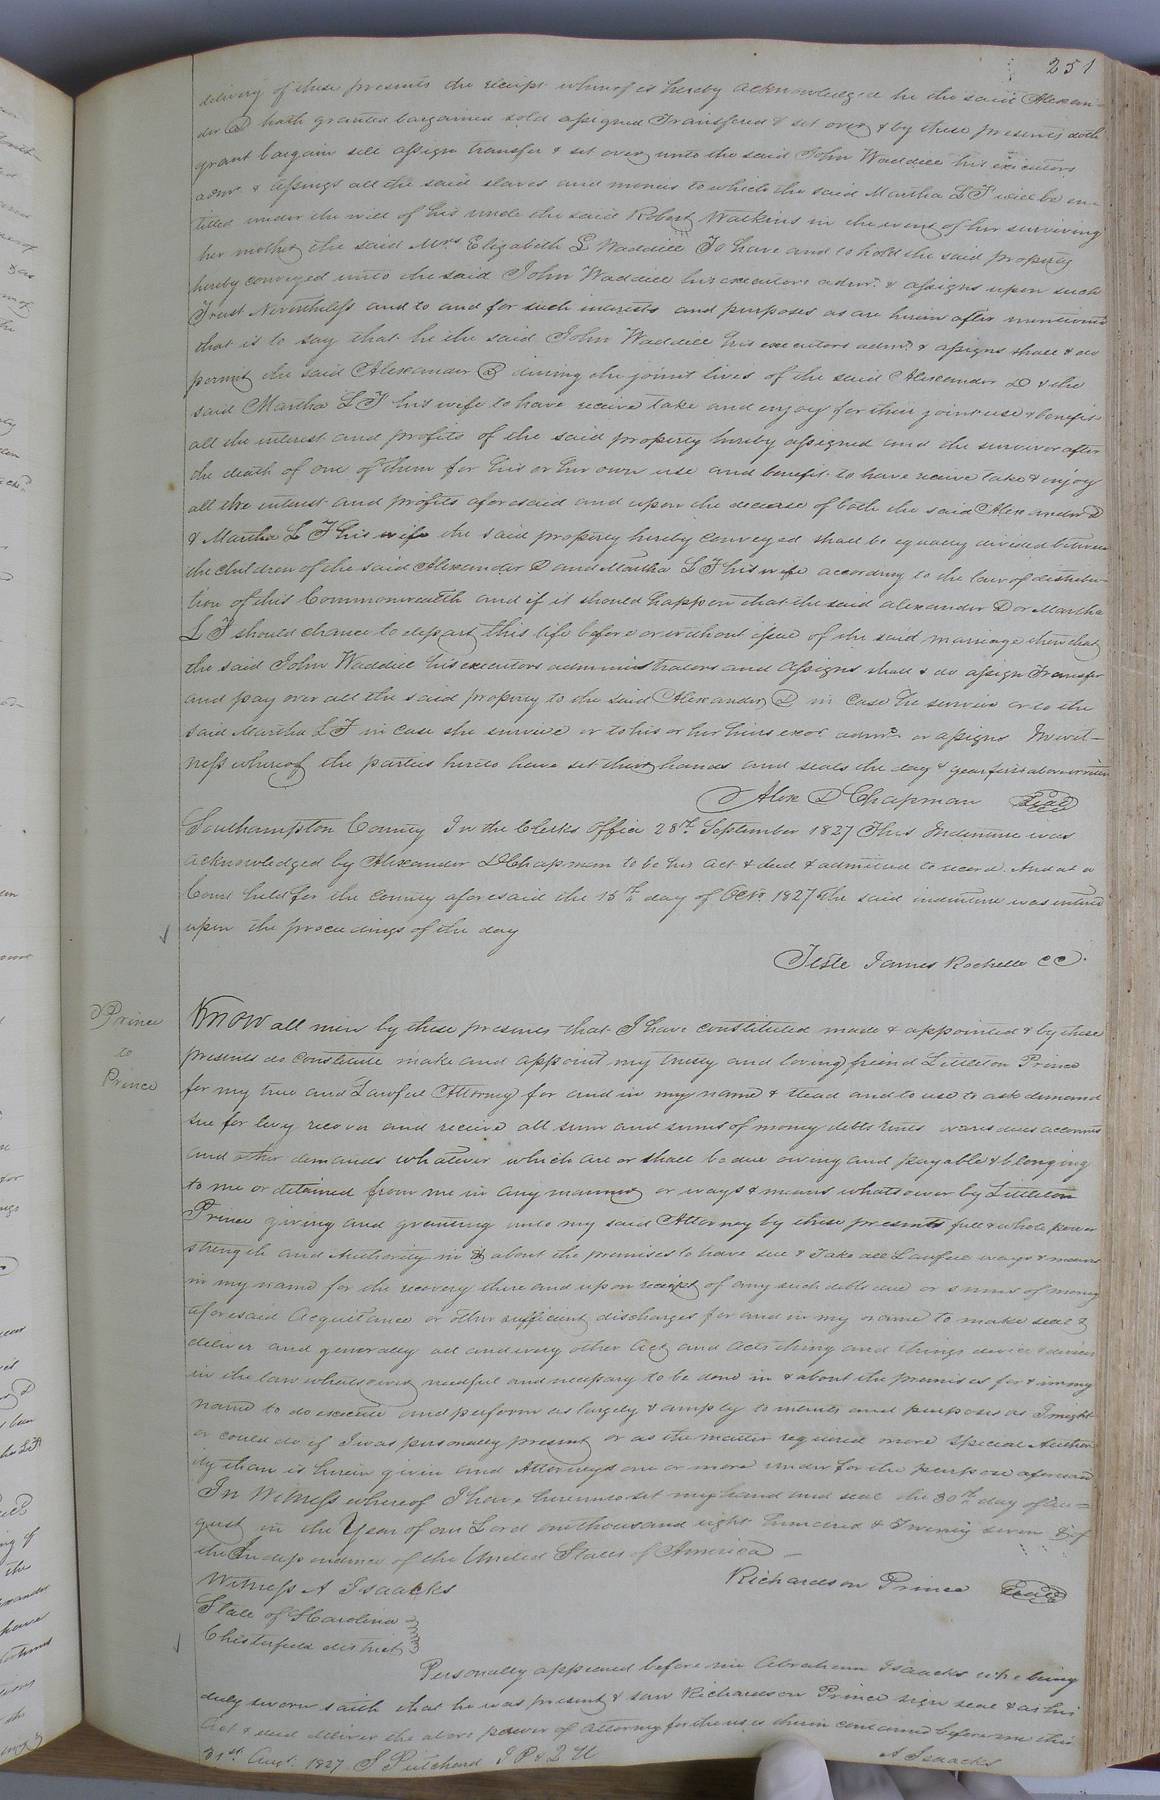 251
delivery of these presents the receipt whereof is hereby acknowledged he the said Alexan-
der D hath granted bargained sold assigned Transfered & set over & by these presents doth
grant bargain sell assign transfer & set over unto the said John Waddill his executors
admr. & assings all the said slaves and monies to which the said Martha L T will be en-
titled under the will of his uncle the said Robert Watkins in the event of her surviving
her mother the said Mrs Elizabeth L Waddill To have and to hold the said property
hereby conveyed unto the said John Waddill his executors admr. & assigns upon such
Trust Nevertheless and to and for such interests and purposes as are herein after mentioned
that is to say that he the said John Waddill his executors admr. & assigns shall & do
permit the said Alexander D during the joint lives of the said Alexander D & the
said Martha L T his wife to have receive take and enjoy for their joint use & benefit
all the interest and profits of the said property hereby assigned and the survivor after
the death of one of them for his or her own use and benefit to have receive take & enjoy
all the interest and profits aforesaid and upon the decease of both the said Alexander D
& Martha L T his wife the said property hereby conveyed shall be equally divided between
the children of the said Alexander D and Martha L T his wife according to the law of distribu-
tion of this Commonwealth and if it should happen that the said alexander D or Martha
L T should chance to depart this life before or without issue of the said marriage then that
the said John Waddill his executors administrators and Assigns shall & do assign Transfer
and pay over all the said property to the said Alexander D in case he survive or to the
said Martha L T in case she survive or to his or her heirs exor. admr. or assigns In wit-
ness whereof the parties hereto have set their hands and seals the day & year first above written
Alex D Chapman Seal
Southampton County In the Clerks Office 28th September 1827 This Indenture was
acknowledged by Alexander D Chapman to be his act & deed & admitted to record. And at a
Court held for the County aforesaid the 15th day of Octr. 1827 The said indenture was entered
upon the proceedings of the day
Teste James Rochelle CC.
Prince
to
Prince
Know all men by these presents that I have constituted made & appointed & by these
presents do constitute make and appoint my trusty and loving friend Littleton Prince
for my true and Lawful Attorney for and in my name & stead and to use to ask demand
sue for levy recover and receive all sum and sums of money debts rents wares dues accounts
and other demands whatever which are or shall be due owing and payable & belonging
to me or detained from me in any manner or ways & means whatsoever by Littleton
Prince giving and granting unto my said Attorney by these presents full & whole power
strength and Authority in & about the premises to have sue & Take all Lawful ways & means
in my name for the recovery there and upon receipt of any such debts due or sums of money
aforesaid Acquitance or other sufficient discharges for and in my name to make seal &
deliver and generally all and every other Act and acts thing and things device & devices
in the law whatsoever needful and necessary to be done in & about the premises for & in my
name to do execute and perform as largely & amply to intents and purposes as I might
or could do if I was personally present or as the matter required more special Author
ity than is herein given and Attorneys one or more under for the purpose aforesaid
In Witness whereof I have hereunto set my hand and seal the 30th day of Au-
gust in the Year of our Lord one thousand eight hundred & Twenty seven & of
the Independence of the United States of America
Richardson Prince Seal
Witness A Isaacks
State of S Carolina
Chesterfield district
Personally appeared before me Abraham Isaacks who being
duly sworn saith that he was present & saw Richardson Prince sign seal & as his
Act & deed deliver the above power of attorney for the uses therein contained before me this
31st Augt. 1827 S Pritchard J P & Q U
A Isaacks